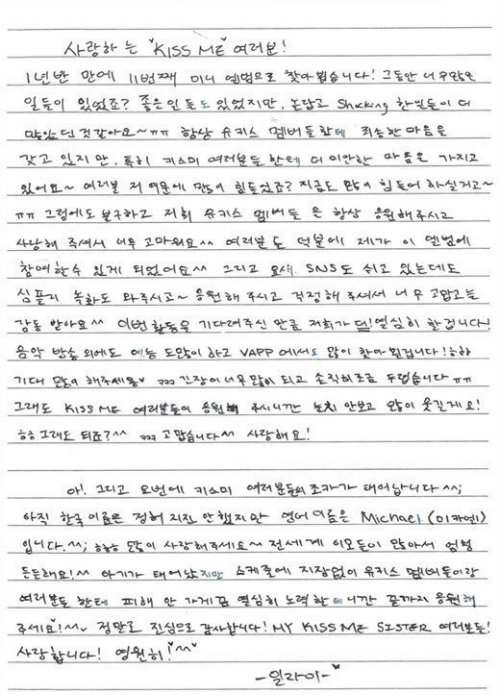 사랑하는 "KISS ME" 여러분!
1년반 만에 11번째 미니 앨범으로 찾아뵙습니다! 그동안 너무많은
일들이 있었죠? 좋은일 들도 있었지만, 논랍고 Shocking 한일들이 더
많았던것같아요~ㅠㅠ 항상 유키스 멤버들한테 죄송한 마음을
갖고 있지 만, 특히 키스미 여러분들 한테 더 미안한 마음을 가지고
있어요~ 여러분 저 때문에 많이 힘들었죠? 지금도 많이 힘들어 하실거고~
ㅠㅠ 그럼에도 불구하고 저희 유키스 멤버들 은 항상 응원해주시고
사랑해 주셔서 너무 고마워요^^ 여러분들 덕분에 제가 이 앨범에
참여할수 있게 되었어요^^ 그리고 요새 SNS도 쉬고 있는데도
심플리 녹화도 와주시고~ 응원해 주시고 걱정해 주셔서 너무 고맙고는
감동 받아요^^ 이번활동을 기다려주신 만큼 저희가 더! 열심히 할겁니다!
음악 방송 외에도 예능 도많이 하고 VAPP 에서도 많이 찾아뵐겁니다! ㅎㅎ
기대 많이 해주세용~ ㅋㅋㅋ 긴장이너무많이 되고 솔직히조금 두렵습니다 ㅠㅠ
그래도 KISS ME 여러분들이 응원해 주시니깐 눈치 안보고 많이 웃길게요!
ㅎㅎ 그래도 되죠?^^ ㅋㅋㅋ 고맙습니다^^ 사랑해요!
아! 그리고 요번에 키스미 여러분들의 조카가 태어납니다 ^^;
아직 한국이름은 정해 지진 안했지만 영어 이름은 Michael (미카엘)
입니다.^^; ㅎㅎㅎ 많이 사랑해주세요~ 전세계 이모들이 많아서 엄청
든든해요!^^ 아기가 태어났지만 스케줄에 지장없이 유키스 멤버들이랑
여러분들 한테 피해 안 가게끔 열심히 노력할테니깐 끝까지 응원해
주세요!^^ 정말로 진심으로 감사합니다! MY KISS ME SISTER 여러분들!
사랑합니다! 영원히!^^♥
-일라이-♥